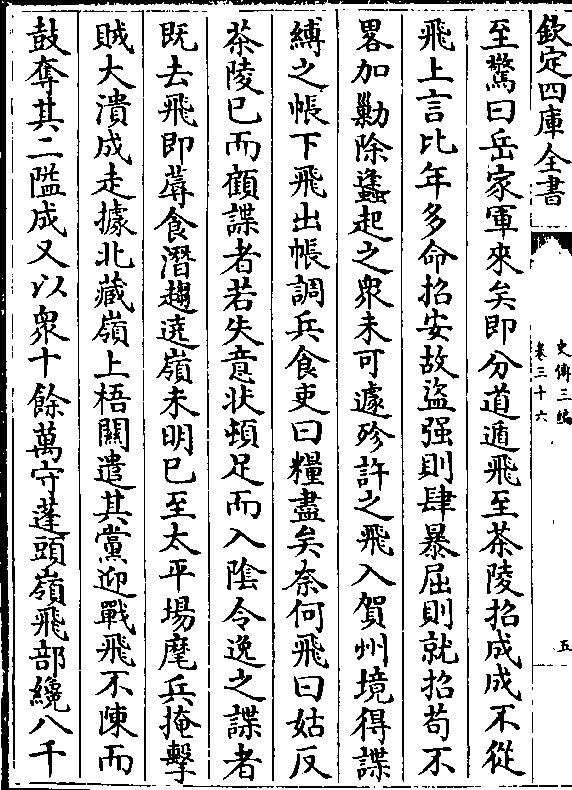 欽定四庫全書
史傳三編
卷三十六
五
至驚曰岳家軍來矣即分道遁飛至茶陵招成成不從
飛上言比年多命招安故盜强則肆暴屈則就招苟不
畧加勦除蠭起之衆未可遽殄許之飛入賀州境得諜
縛之帳下飛出帳調兵食吏曰糧盡矣奈何飛曰姑反
茶陵已而顧諜者若失意狀頓足而入陰令逸之諜者
既去飛即蓐食潛趨遶嶺未明已至太平場麾兵掩擊
賊大潰成走據北藏嶺上梧關遣其黨迎戰飛不陳而
鼓奪其二隘成又以衆十餘萬守蓬頭嶺飛部纔八千